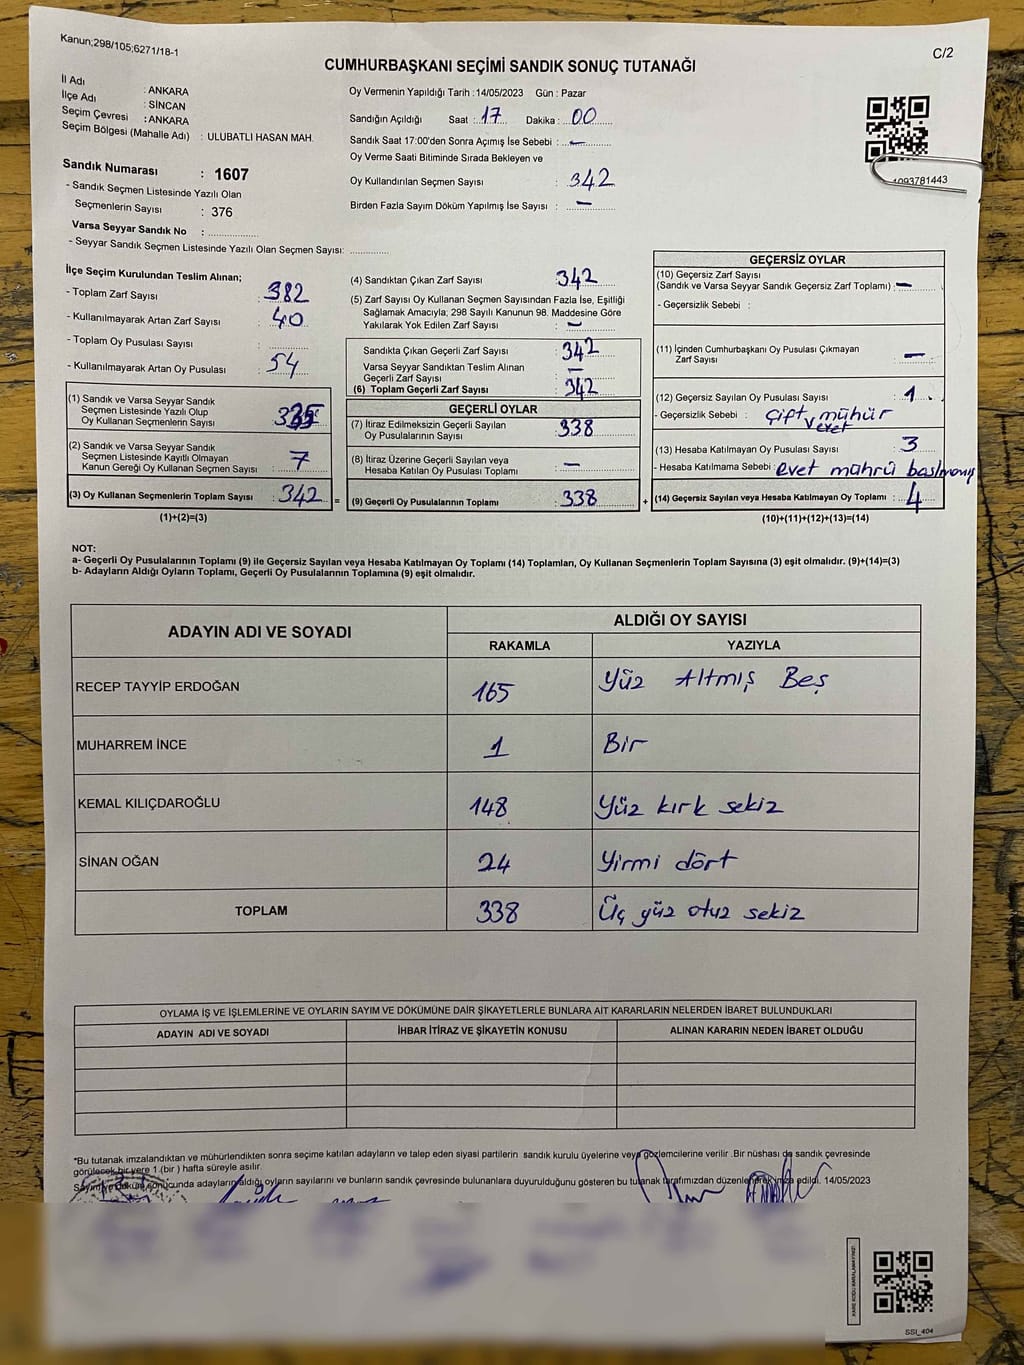 Kanun;298/105;6271/18-1
C/2
CUMHURBAŞKANI SEÇİMİ SANDIK SONUÇ TUTANAĞI
İl Adı : ANKARA
İlçe Adı : SİNCAN
Seçim Çevresi : ANKARA
Seçim Bölgesi (Mahalle Adı) : ULUBATLI HASAN MAH.
Sandık Numarası : 1607
- Sandık Seçmen Listesinde Yazılı Olan
Seçmenlerin Sayısı : 376
Varsa Seyyar Sandık No :
- Seyyar Sandık Seçmen Listesinde Yazılı Olan Seçmen Sayısı:
Oy Vermenin Yapıldığı Tarih :14/05/2023 Gün : Pazar
Sandığın Açıldığı Saat : 17 Dakika : 00
Sandık Saat 17:00'den Sonra Açımış İse Sebebi : —
Oy Verme Saati Bitiminde Sırada Bekleyen ve
Oy Kullandırılan Seçmen Sayısı : 342
Birden Fazla Sayım Döküm Yapılmış İse Sayısı : —
1093781443
İlçe Seçim Kurulundan Teslim Alınan;
- Toplam Zarf Sayısı : 382
- Kullanılmayarak Artan Zarf Sayısı : 40
- Toplam Oy Pusulası Sayısı :
- Kullanılmayarak Artan Oy Pusulası : 54
(1) Sandık ve Varsa Seyyar Sandık
Seçmen Listesinde Yazılı Olup
Oy Kullanan Seçmenlerin Sayısı : 335
(2) Sandık ve Varsa Seyyar Sandık
Seçmen Listesinde Kayıtlı Olmayan
Kanun Gereği Oy Kullanan Seçmen Sayısı : 7
(3) Oy Kullanan Seçmenlerin Toplam Sayısı : 342 =
(1)+(2)=(3)
(4) Sandıktan Çıkan Zarf Sayısı : 342
(5) Zarf Sayısı Oy Kullanan Seçmen Sayısından Fazla İse, Eşitliği
Sağlamak Amacıyla; 298 Sayılı Kanunun 98. Maddesine Göre
Yakılarak Yok Edilen Zarf Sayısı : —
Sandıkta Çıkan Geçerli Zarf Sayısı : 342
Varsa Seyyar Sandıktan Teslim Alınan
Geçerli Zarf Sayısı : —
(6) Toplam Geçerli Zarf Sayısı : 342
GEÇERLİ OYLAR
(7) İtiraz Edilmeksizin Geçerli Sayılan
Oy Pusulalarının Sayısı : 338
(8) İtiraz Üzerine Geçerli Sayılan veya
Hesaba Katılan Oy Pusulası Toplamı : —
(9) Geçerli Oy Pusulalarının Toplamı : 338 +
GEÇERSİZ OYLAR
(10) Geçersiz Zarf Sayısı
(Sandık ve Varsa Seyyar Sandık Geçersiz Zarf Toplamı) : —
- Geçersizlik Sebebi :
(11) İçinden Cumhurbaşkanı Oy Pusulası Çıkmayan
Zarf Sayısı : —
(12) Geçersiz Sayılan Oy Pusulası Sayısı : 1
- Geçersizlik Sebebi : Çift evet mühür
(13) Hesaba Katılmayan Oy Pusulası Sayısı : 3
- Hesaba Katılmama Sebebi : evet mührü basılmamış
(14) Geçersiz Sayılan veya Hesaba Katılmayan Oy Toplamı : 4
(10)+(11)+(12)+(13)=(14)
NOT:
a- Geçerli Oy Pusulalarının Toplamı (9) ile Geçersiz Sayılan veya Hesaba Katılmayan Oy Toplamı (14) Toplamları, Oy Kullanan Seçmenlerin Toplam Sayısına (3) eşit olmalıdır. (9)+(14)=(3)
b- Adayların Aldığı Oyların Toplamı, Geçerli Oy Pusulalarının Toplamına (9) eşit olmalıdır.
ADAYIN ADI VE SOYADI ALDIĞI OY SAYISI
RAKAMLA YAZIYLA
RECEP TAYYİP ERDOĞAN 165 Yüz Altmış Beş
MUHARREM İNCE 1 Bir
KEMAL KILIÇDAROĞLU 148 Yüz kırk sekiz
SİNAN OĞAN 24 Yirmi dört
TOPLAM 338 Üç yüz otuz sekiz
OYLAMA İŞ VE İŞLEMLERİNE VE OYLARIN SAYIM VE DÖKÜMÜNE DAİR ŞİKAYETLERLE BUNLARA AİT KARARLARIN NELERDEN İBARET BULUNDUKLARI
ADAYIN ADI VE SOYADI İHBAR İTİRAZ VE ŞİKAYETİN KONUSU ALINAN KARARIN NEDEN İBARET OLDUĞU
*Bu tutanak imzalandıktan ve mühürlendikten sonra seçime katılan adayların ve talep eden siyasi partilerin sandık kurulu üyelerine veya gözlemcilerine verilir .Bir nüshası da sandık çevresinde
görülecek bir yere 1 (bir ) hafta süreyle asılır.
Sayım ve döküm sonucunda adayların aldığı oyların sayılarını ve bunların sandık çevresinde bulunanlara duyurulduğunu gösteren bu tutanak tarafımızdan düzenlenerek imza edildi. 14/05/2023
SSI_404